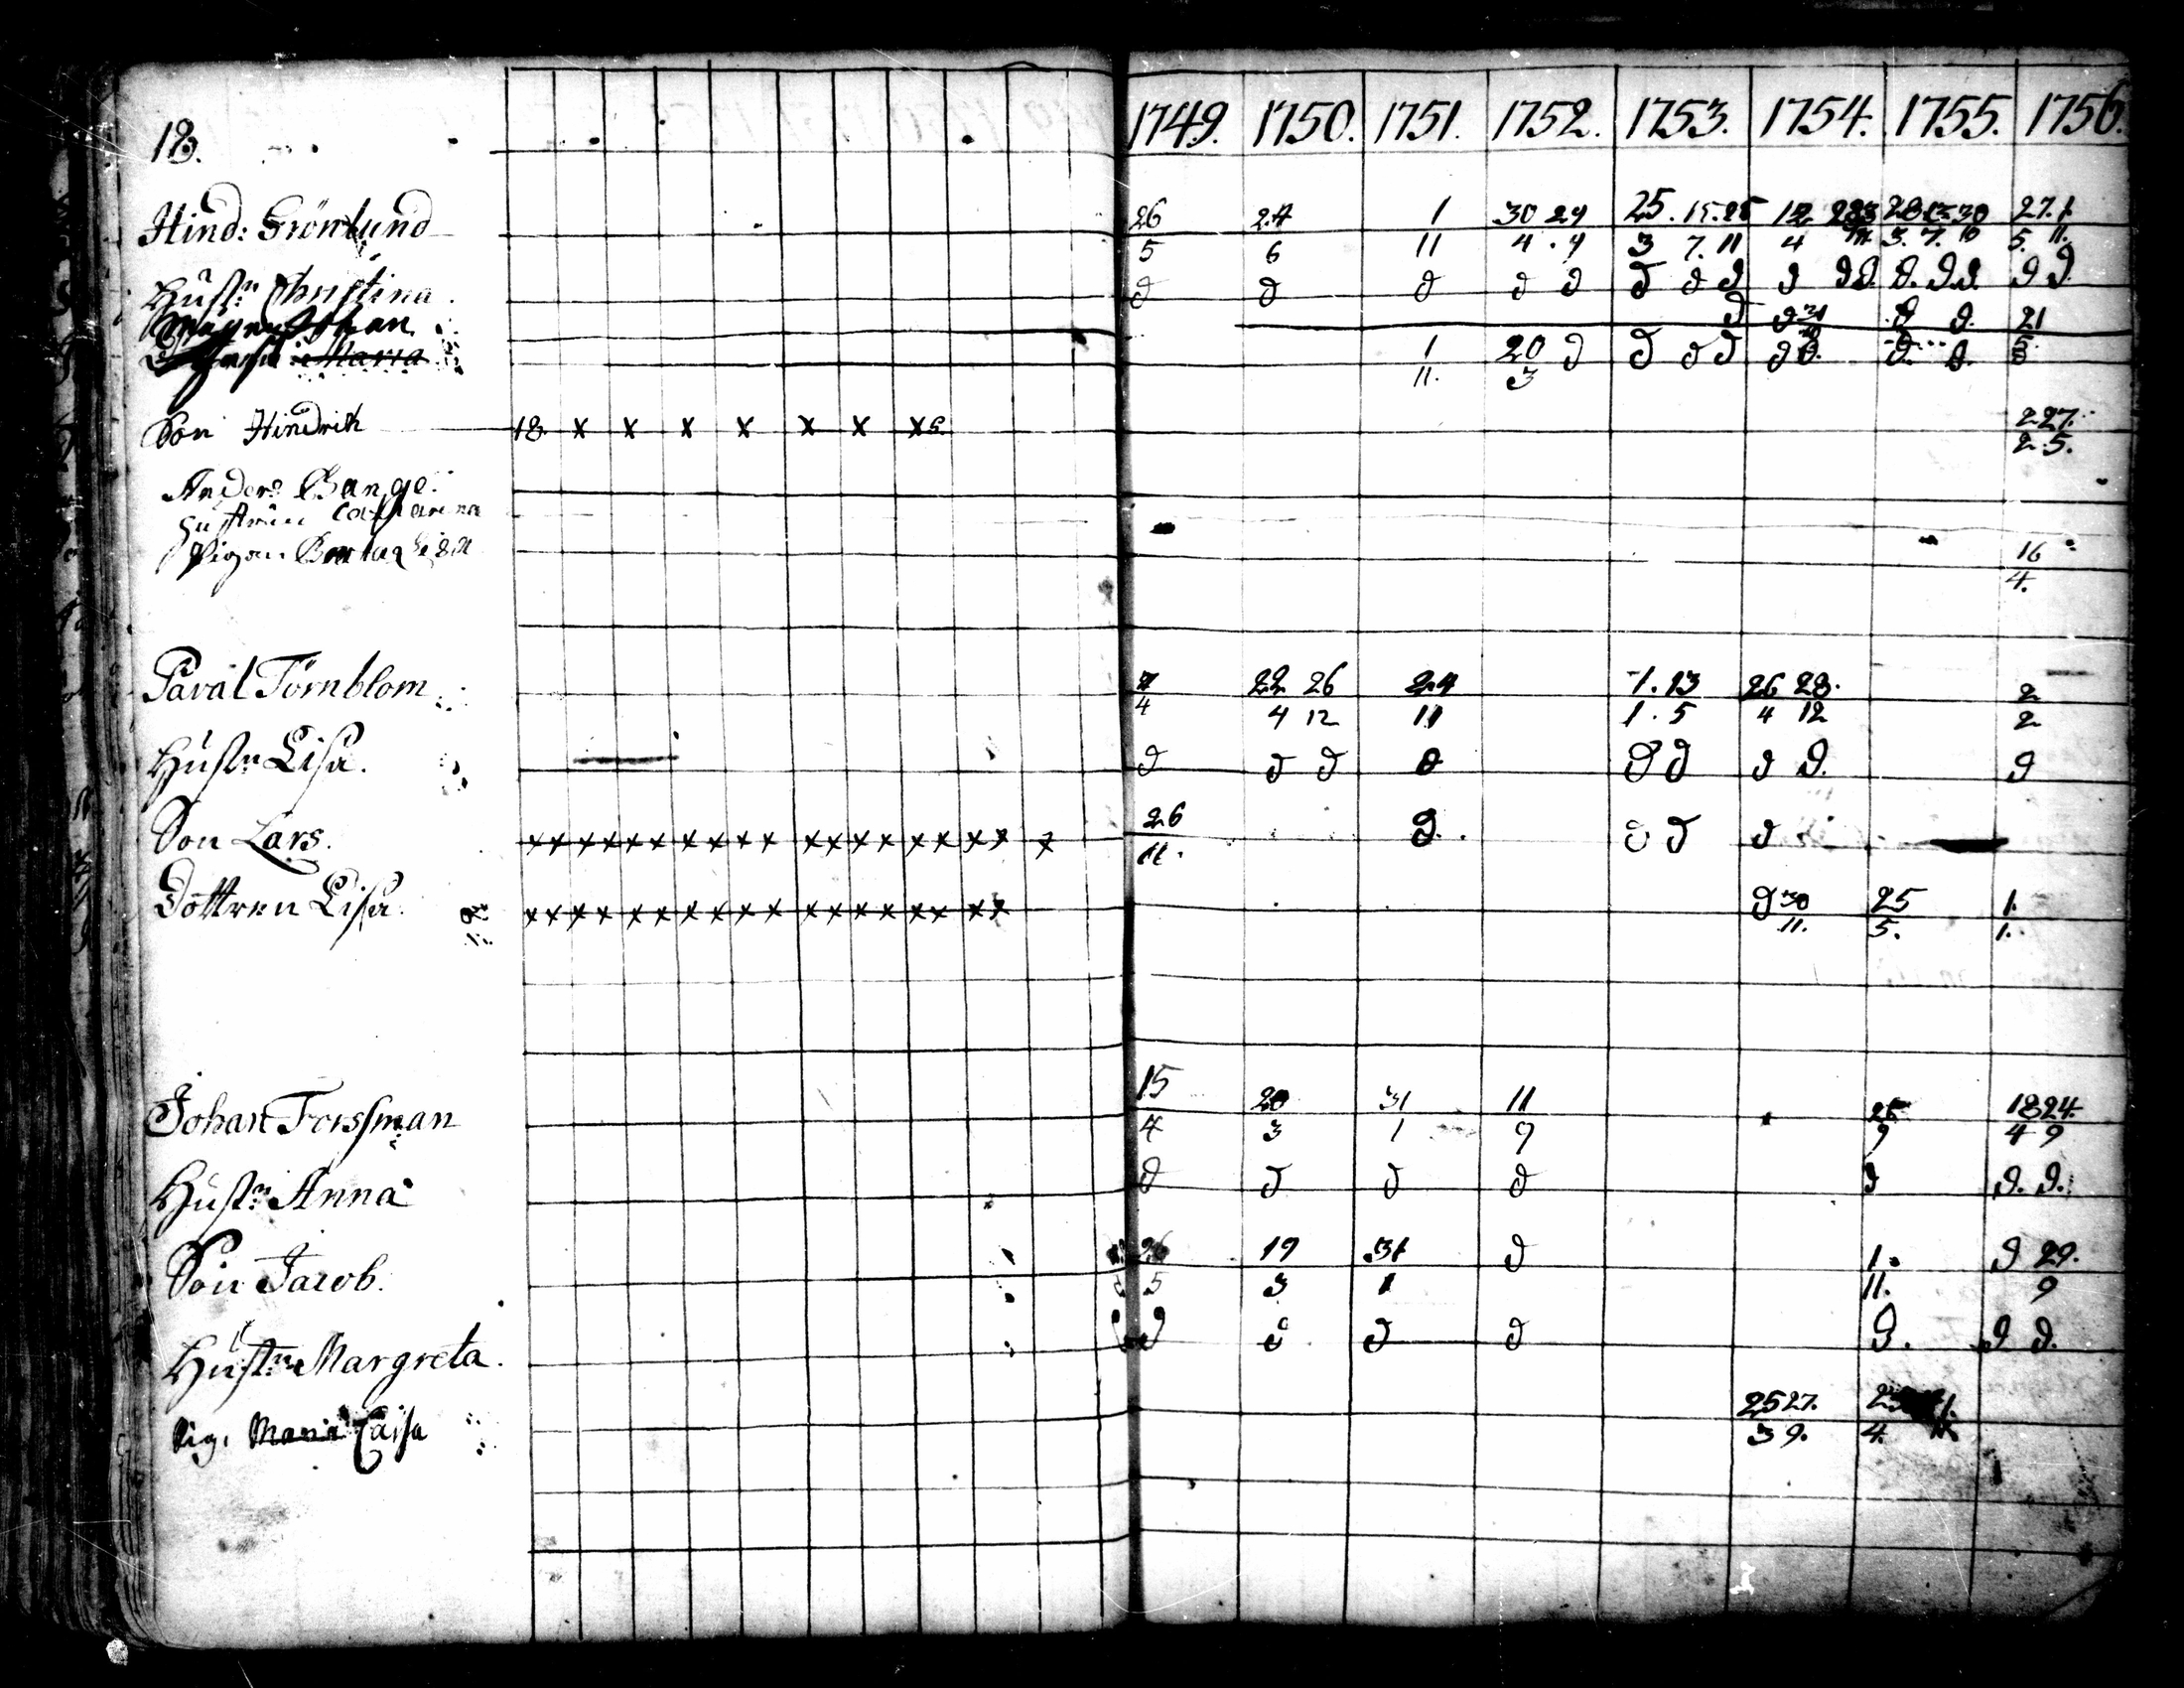 18. 1749. 1750. 1751. 1752. 1753. 1754. 1755. 1756.
Hind: Grönlund 26/5 24/6 1/11 30/4 29/9 25/3 15/7 25/11 12/4 28/3 13/7 30/10 27/5 1/11
Hustr: Christina. d d d d d d d d d d d d. d. d. d d
Johan d d 31 d d. 21/5
Maria 1/11. 20/3 d d d d d d. d. d.
Son Hindrik 18. x x x x x x x 2/2 27/5.
Anders Bange.
Hustrun Catharina
Pigan Lisa 16/4.
Påval Törnblom 7/4 22/4 26/12 24/11 1/1 13/5 26/4 28/12 2/2
Hustr: Lisa. d d d d d d d d. d
Son Lars. x x x x x x x x x x x x x x x x x x x 26/11. d. d d d
Dottren Lisa. x x x x x x x x x x x x x x x x x x d 30/11. 25/5. 1/1.
Johan Forssman 15/4 20/3 31/1 11/9 25/9 18/4 24/9
Hustr: Anna d d d d d d. d.
Son Jacob. 26/5 19/3 31/1 d 1/11. d 29/9
Hustr: Margreta. d d d d d. d d.
Pig: Maria Caisa 25/3 27/9. 4.